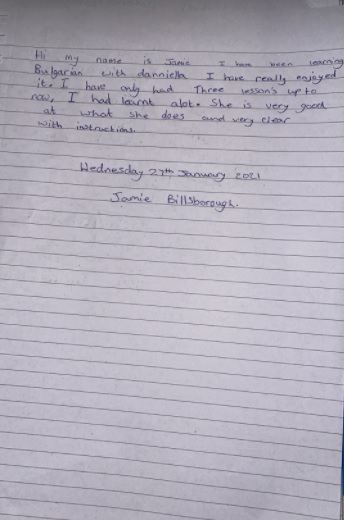 Hi my name is Jamie I have been learning
Bulgarian with danniella I have really enjoyed
it. I have only had Three lesson's up to
now, I had learnt alot. She is very good
at what she does and very clear
with instructions.
Wednesday 27th January 2021
Jamie Billsborough.